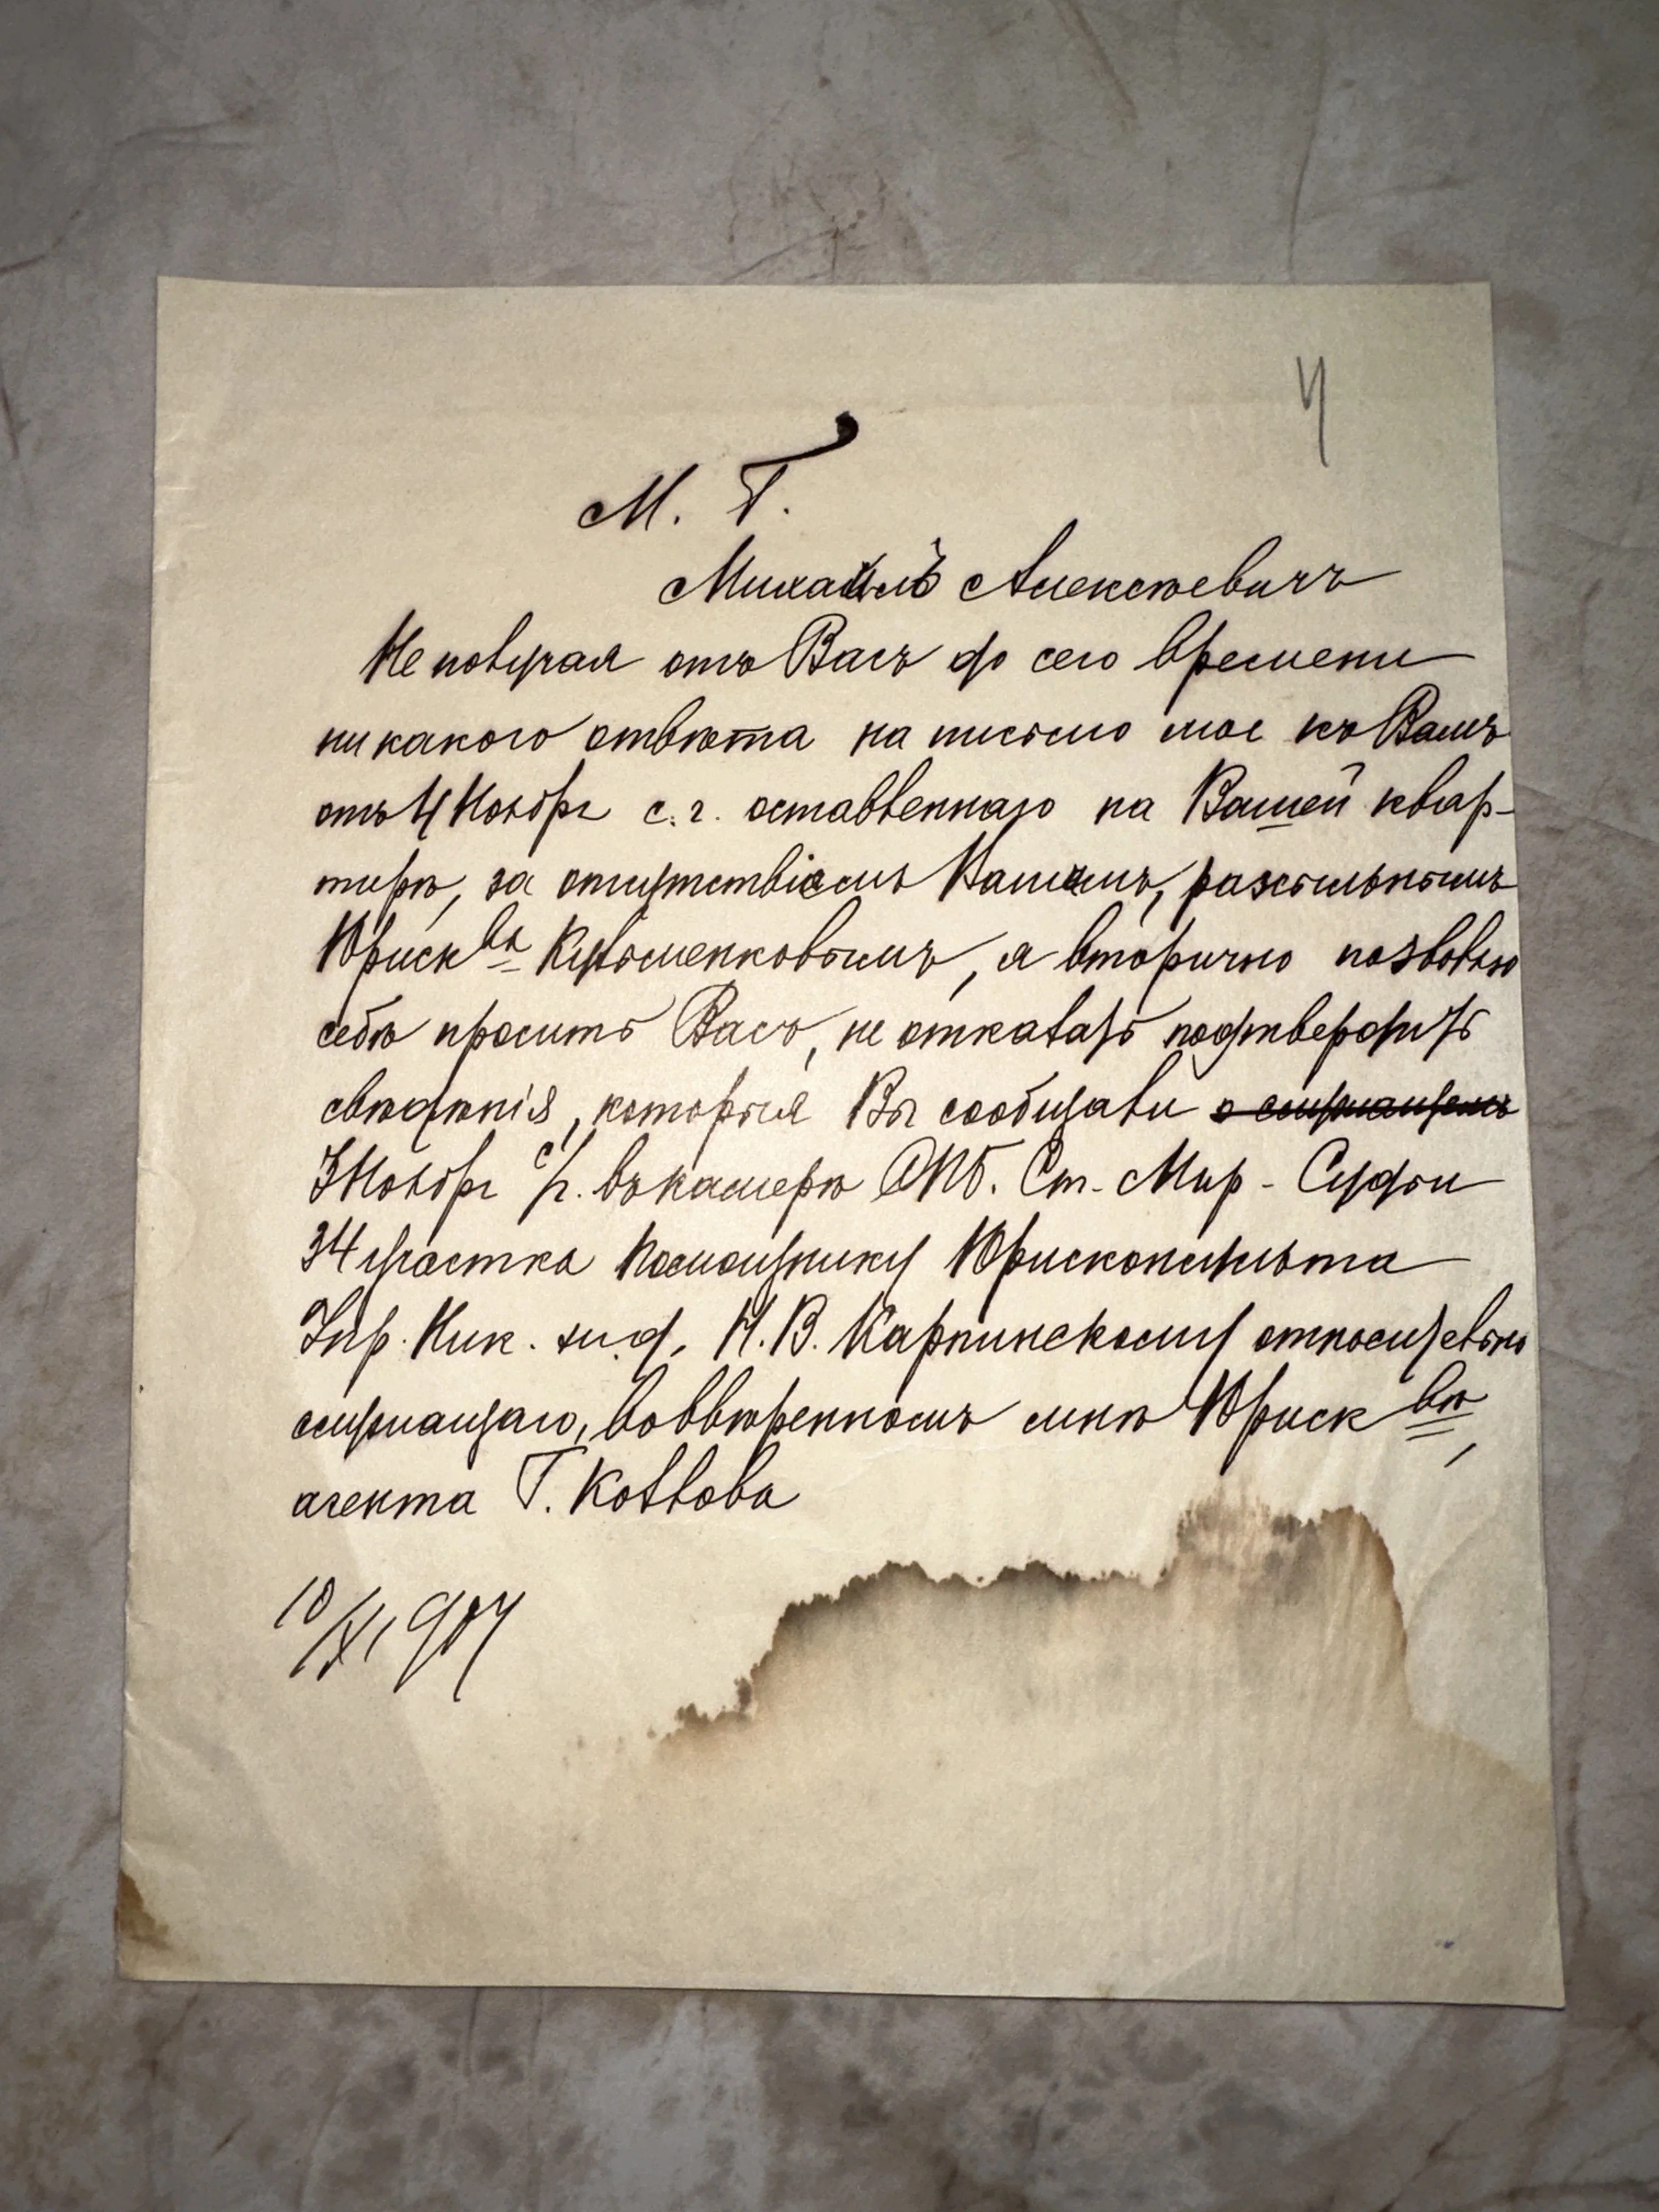 4
М. Г.
Михаилъ Алексѣевичъ
Не получая отъ Васъ до сего времени
никакого отвѣта на письмо мое къ Вамъ
отъ 4 Ноября с. г. оставленнаго на Вашей квар-
тирѣ, за отсутствіемъ Вашимъ, разсыльнымъ
Юриск ва Кузьменковымъ, я вторично позволю
себѣ просить Васъ, не отказать подтвердить
свѣдѣнія, которыя Вы сообщали
3 Ноября с/г. въ камерѣ СПБ. Ст. Мир. Судьи
34 участка Помощнику Юрисконсульта
Упр. Ник. ж. д. Н. В. Карпинскому относительно
служащаго, во ввѣренномъ мнѣ Юриск вѣ,
агента Г. Козлова
10/XI 907